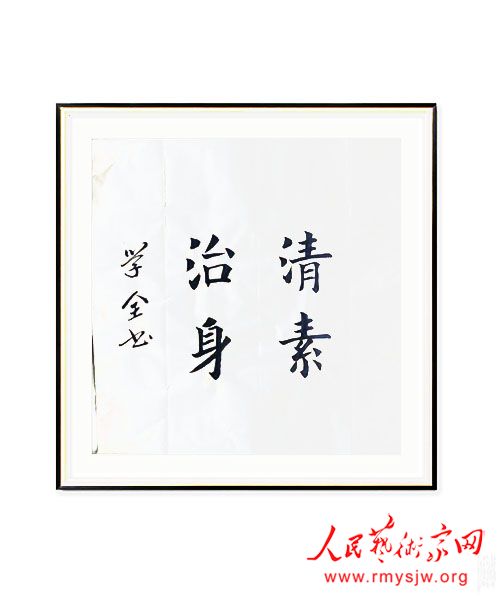 清素
治身
学全书
人民艺術家网
www.rmysjw.org